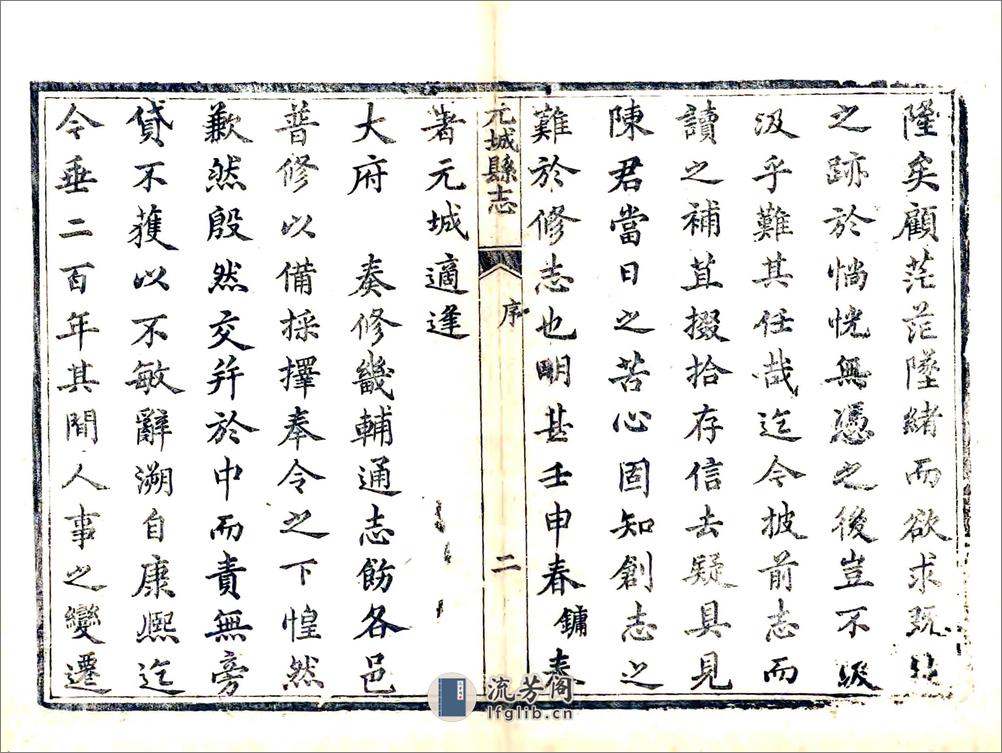 隆矣顧茫茫墜緒而欲求既
之跡於惝恍無憑之後豈不汲
汲乎難其任哉迄今披前志而
讀之補苴掇拾存信去疑具見
陳君當日之苦心固知創志之
難於修志也明甚壬申春鏞奉
元城縣志 序 二
署元城適逢
大府 奏修畿輔通志飭各邑
普修以備採擇奉令之下惶然
歉然殷然交幷於中而責無旁
貸不獲以不敏辭溯自康熙迄
今垂二百年其間人事之變遷
流芳阁
lfglib.cn